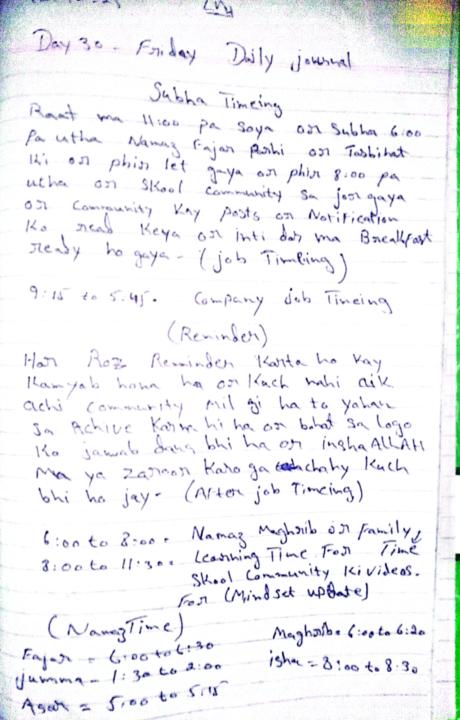 Day 30 - Friday Daily journal
Subha Timeing
Raat ma 11:00 pa Soya or Subha 6:00
Pa utha Namaz Fajar Parhi or Tasbihat
Ki or phir let gaya or phir 8:00 pa
utha or Skool Community sa jor gaya
or Community kay posts or Notification
Ko read Keya or inti dar ma Breakfast
ready ho gaya - (job Timeing)
9:15 to 5:45. Company Job Timeing
(Reminder)
Har Roz Reminder Karta ho kay
Kamyab hona ha or Kuch nahi aik
achi community mil gi ha to yahan
sa Achive Karna hi ha or bhot sa logo
Ko jawab dana bhi ha or inshaALLAH
Ma ya zaroor Karo ga chahy Kuch
bhi ho jay - (After job Timeing)
6:00 to 8:00 = Namaz Maghrib or family Time
8:00 to 11:30 = Learning Time For
Skool Community Ki videos.
For (Mindset update)
(Namaz Time)
Fajar - 6:00 to 6:30 Maghrib = 6:00 to 6:20
Jumma - 1:30 to 2:00 isha = 8:00 to 8:30
Asar = 5:00 to 5:15